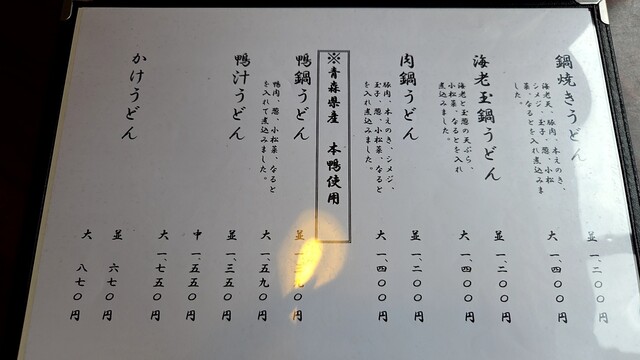 鍋焼きうどん
海老天、豚肉、本えのき、
シメジ、玉子、葱、小松
菜、なるとを入れ煮込みま
した。
並 一、二〇〇円
大 一、四〇〇円
海老玉鍋うどん
海老と玉葱の天ぷら、
小松菜、なるとを入れ
煮込みました。
並 一、二〇〇円
大 一、四〇〇円
肉鍋うどん
豚肉、本えのき、シメジ、
玉子、葱、小松菜、なると
を入れ煮込みました。
並 一、二〇〇円
大 一、四〇〇円
※青森県産 本鴨使用
鴨鍋うどん
鴨肉、葱、小松菜、なると
を入れて煮込みました。
並 円
大 一、五九〇円
鴨汁うどん
並 一、三五〇円
中 一、五五〇円
大 一、七五〇円
かけうどん
並 六七〇円
大 八七〇円